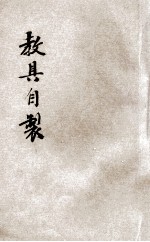 教具自製